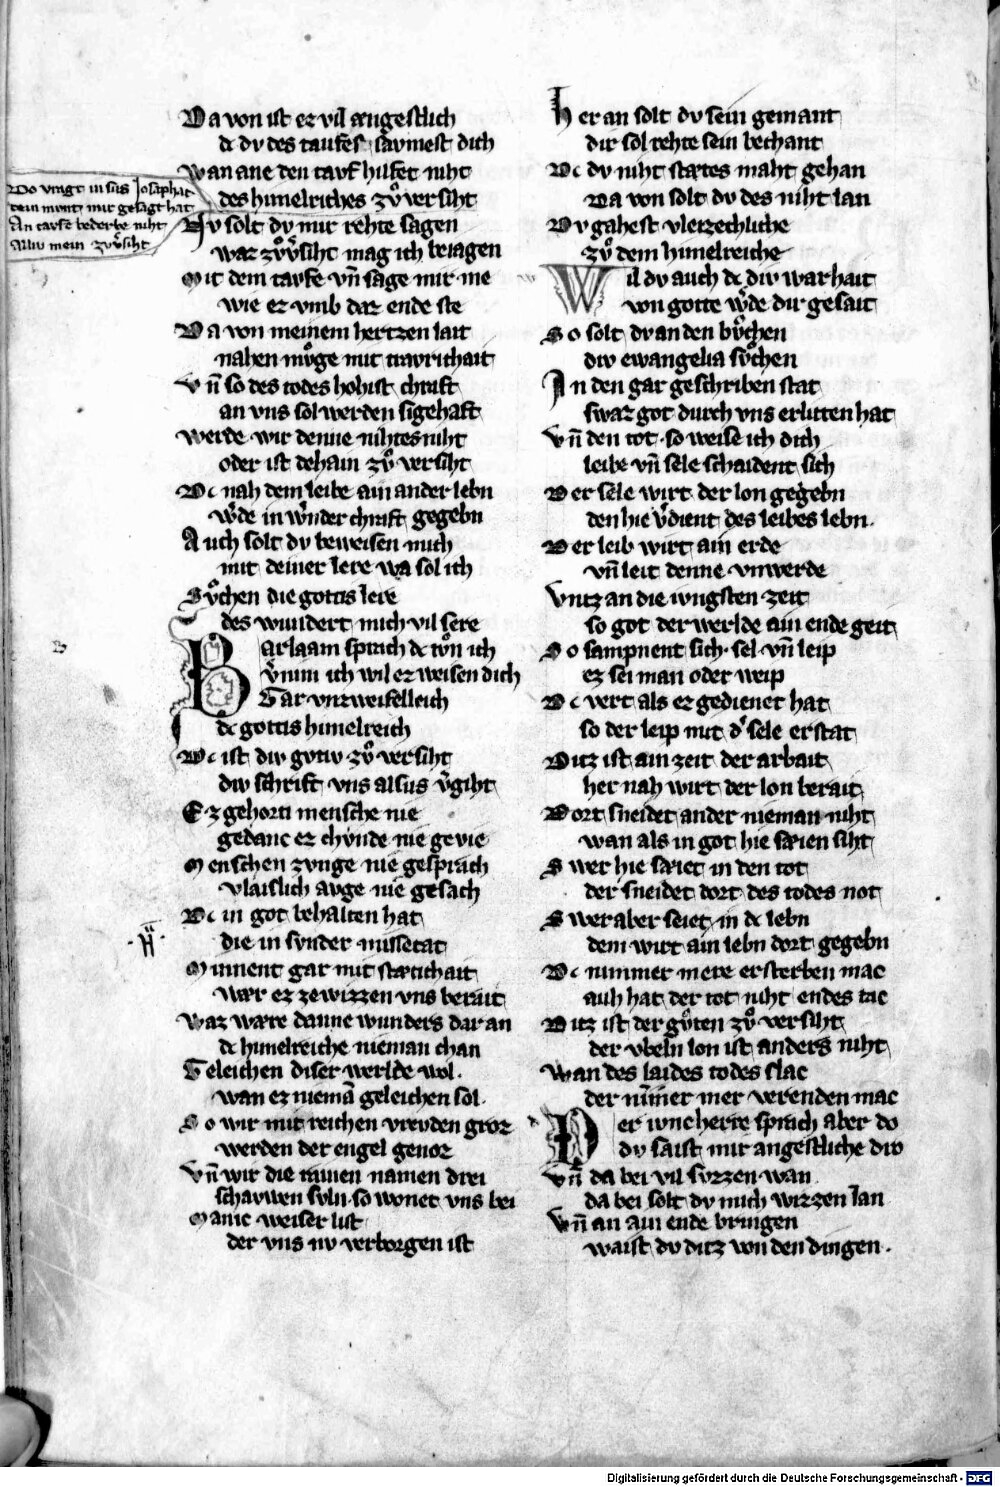 Da von ist er vil ængestlich
dc dv des taufes savmest dich
Wan ane den tavf hilfet niht
des himelriches zvͦ versiht
Do vragt in sus Josaphat
dein mvnt mir gesagt hat
An tavfe bederbe niht
Alliv mein zvv̾siht
Nv solt dv mir rehte sagen
waz zvͦv̾siht mag ich beiagen
Mit dem tavfe vn̄ sage mir me
wie ez vmb daz ende ste
Da von meinem hertzen lait
nahen mvͦge mit travrichait
Vn̄ so des todes hohist chraft
an vns sol werden sigehaft
Werde wir denne nihtes niht
oder ist dehain zvͦ versiht
Dc nah dem leibe ain ander lebn
w̾de in w̾nder chraft gegebn
Auch solt dv beweisen mich
mit deiner lere wa sol ich
Svͦchen die gottis lere
des wundert mich vil sere
Barlaam sprach dc tvͦn ich
v̾nim ich wil ez weisen dich
Gar vnzweifelleich
dc gottis himelreich
Dc ist div gvtiv zvͦ versiht
div schrift vns alsus v̾giht
Ez gehorti mensche nie
gedanc ez chvnde nie gevie
Menschen zvnge nie gesprach
vlaislich avge nie gesach
Dc in got behalten hat
die in svnder missetat
Minnent gar mit stætichait
wær ez zewizzen vns berait
Waz wære danne wunders dar an
dc himelreiche nieman chan
Geleichen diser werlde wol.
wan ez niemā geleichen sol.
So wir mit reichen vrevden groz
werden der engel genoz
Vn̄ wir die namen drei
schavwen svln so wonet vns bei
Manic weiser list
der vns nv verborgen ist
Her an solt dv sein gemant
dir sol rehte sein bechant
Dc dv niht stætes maht gehan
Da von solt dv des niht lan
Dv gahest vleizechliche
zvͦ dem himelreiche
Wil dv auch dc div warhait
von gotte w̾de dir gesait
So solt dv an den bvͦchen
div ewangelia svͦchen
In den gar geschriben stat
swaz got durch vns erliten hat
Vn̄ den tot so weise ich dich
leibe vn̄ sele schaident sich
Der sele wirt der lon gegebn
den hie v̾dient des leibes lebn.
Der leib wirt ain erde
vn̄ leit denne vnwerde
Vntz an die ivngsten zeit
so got der werlde ain ende geit
So sampnent sich sel vn̄ leip
ez sei man oder weip
Dc vert als ez gedienet hat
so der leip mit d̾ sele erstat
Ditz ist ain zeit der arbait
her nah wirt der lon berait
Dort sneidet ander nieman niht
wan als in got hie sæien siht
Swer hie sæiet in den tot
der sneidet dort des todes not
Swer aber seiet in dc lebn
dem wirt ain lebn dort gegebn
Dc nimmer mere ersterben mac
auh hat der tot niht endes tac
Ditz ist der gvͦten zvͦ versiht
der vbeln lon ist anders niht
Wan des laides todes slac
der nim̄er mer verenden mac
Der ivncherre sprach aber do
dv saist mir angestliche dro
Vn̄ da bei vil svzzen wan
da bei solt dv mich wizzen lan
Vn̄ an ain ende bringen
waist dv ditz von den dingen.
Digitalisierung gefördert durch die Deutsche Forschungsgemeinschaft - DFG